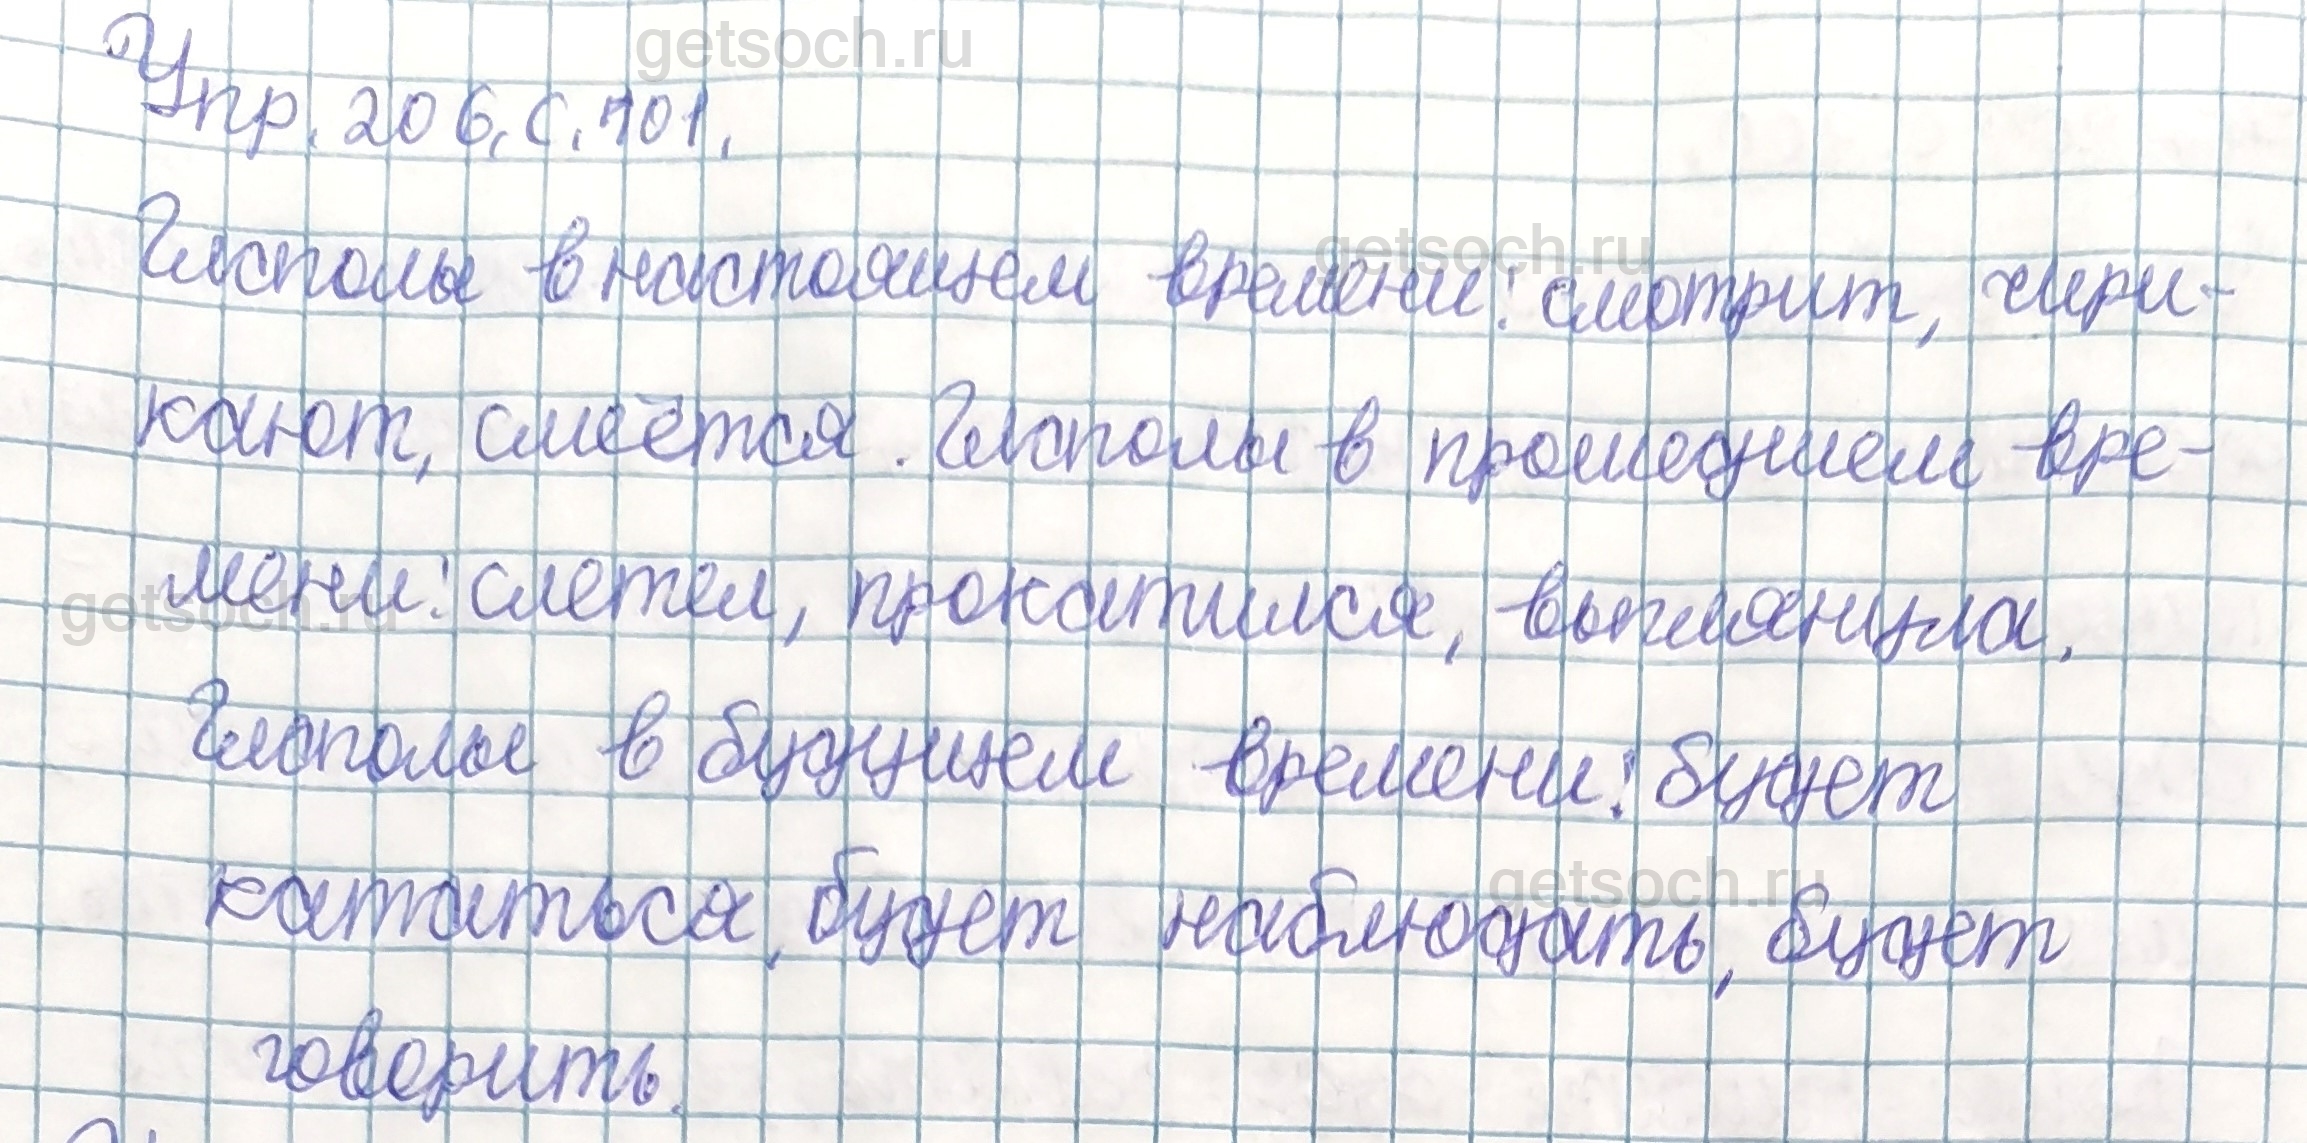 getsoch.ru
Упр. 206, с. 101.
getsoch.ru
Глаголы в настоящем времени: смотрит, чири-
кают, смеётся. Глаголы в прошедшем вре-
мени: слетел, прокатился, выглянула.
getsoch.ru
Глаголы в будущем времени: будет
getsoch.ru
кататься, будет наблюдать, будет
говорить.